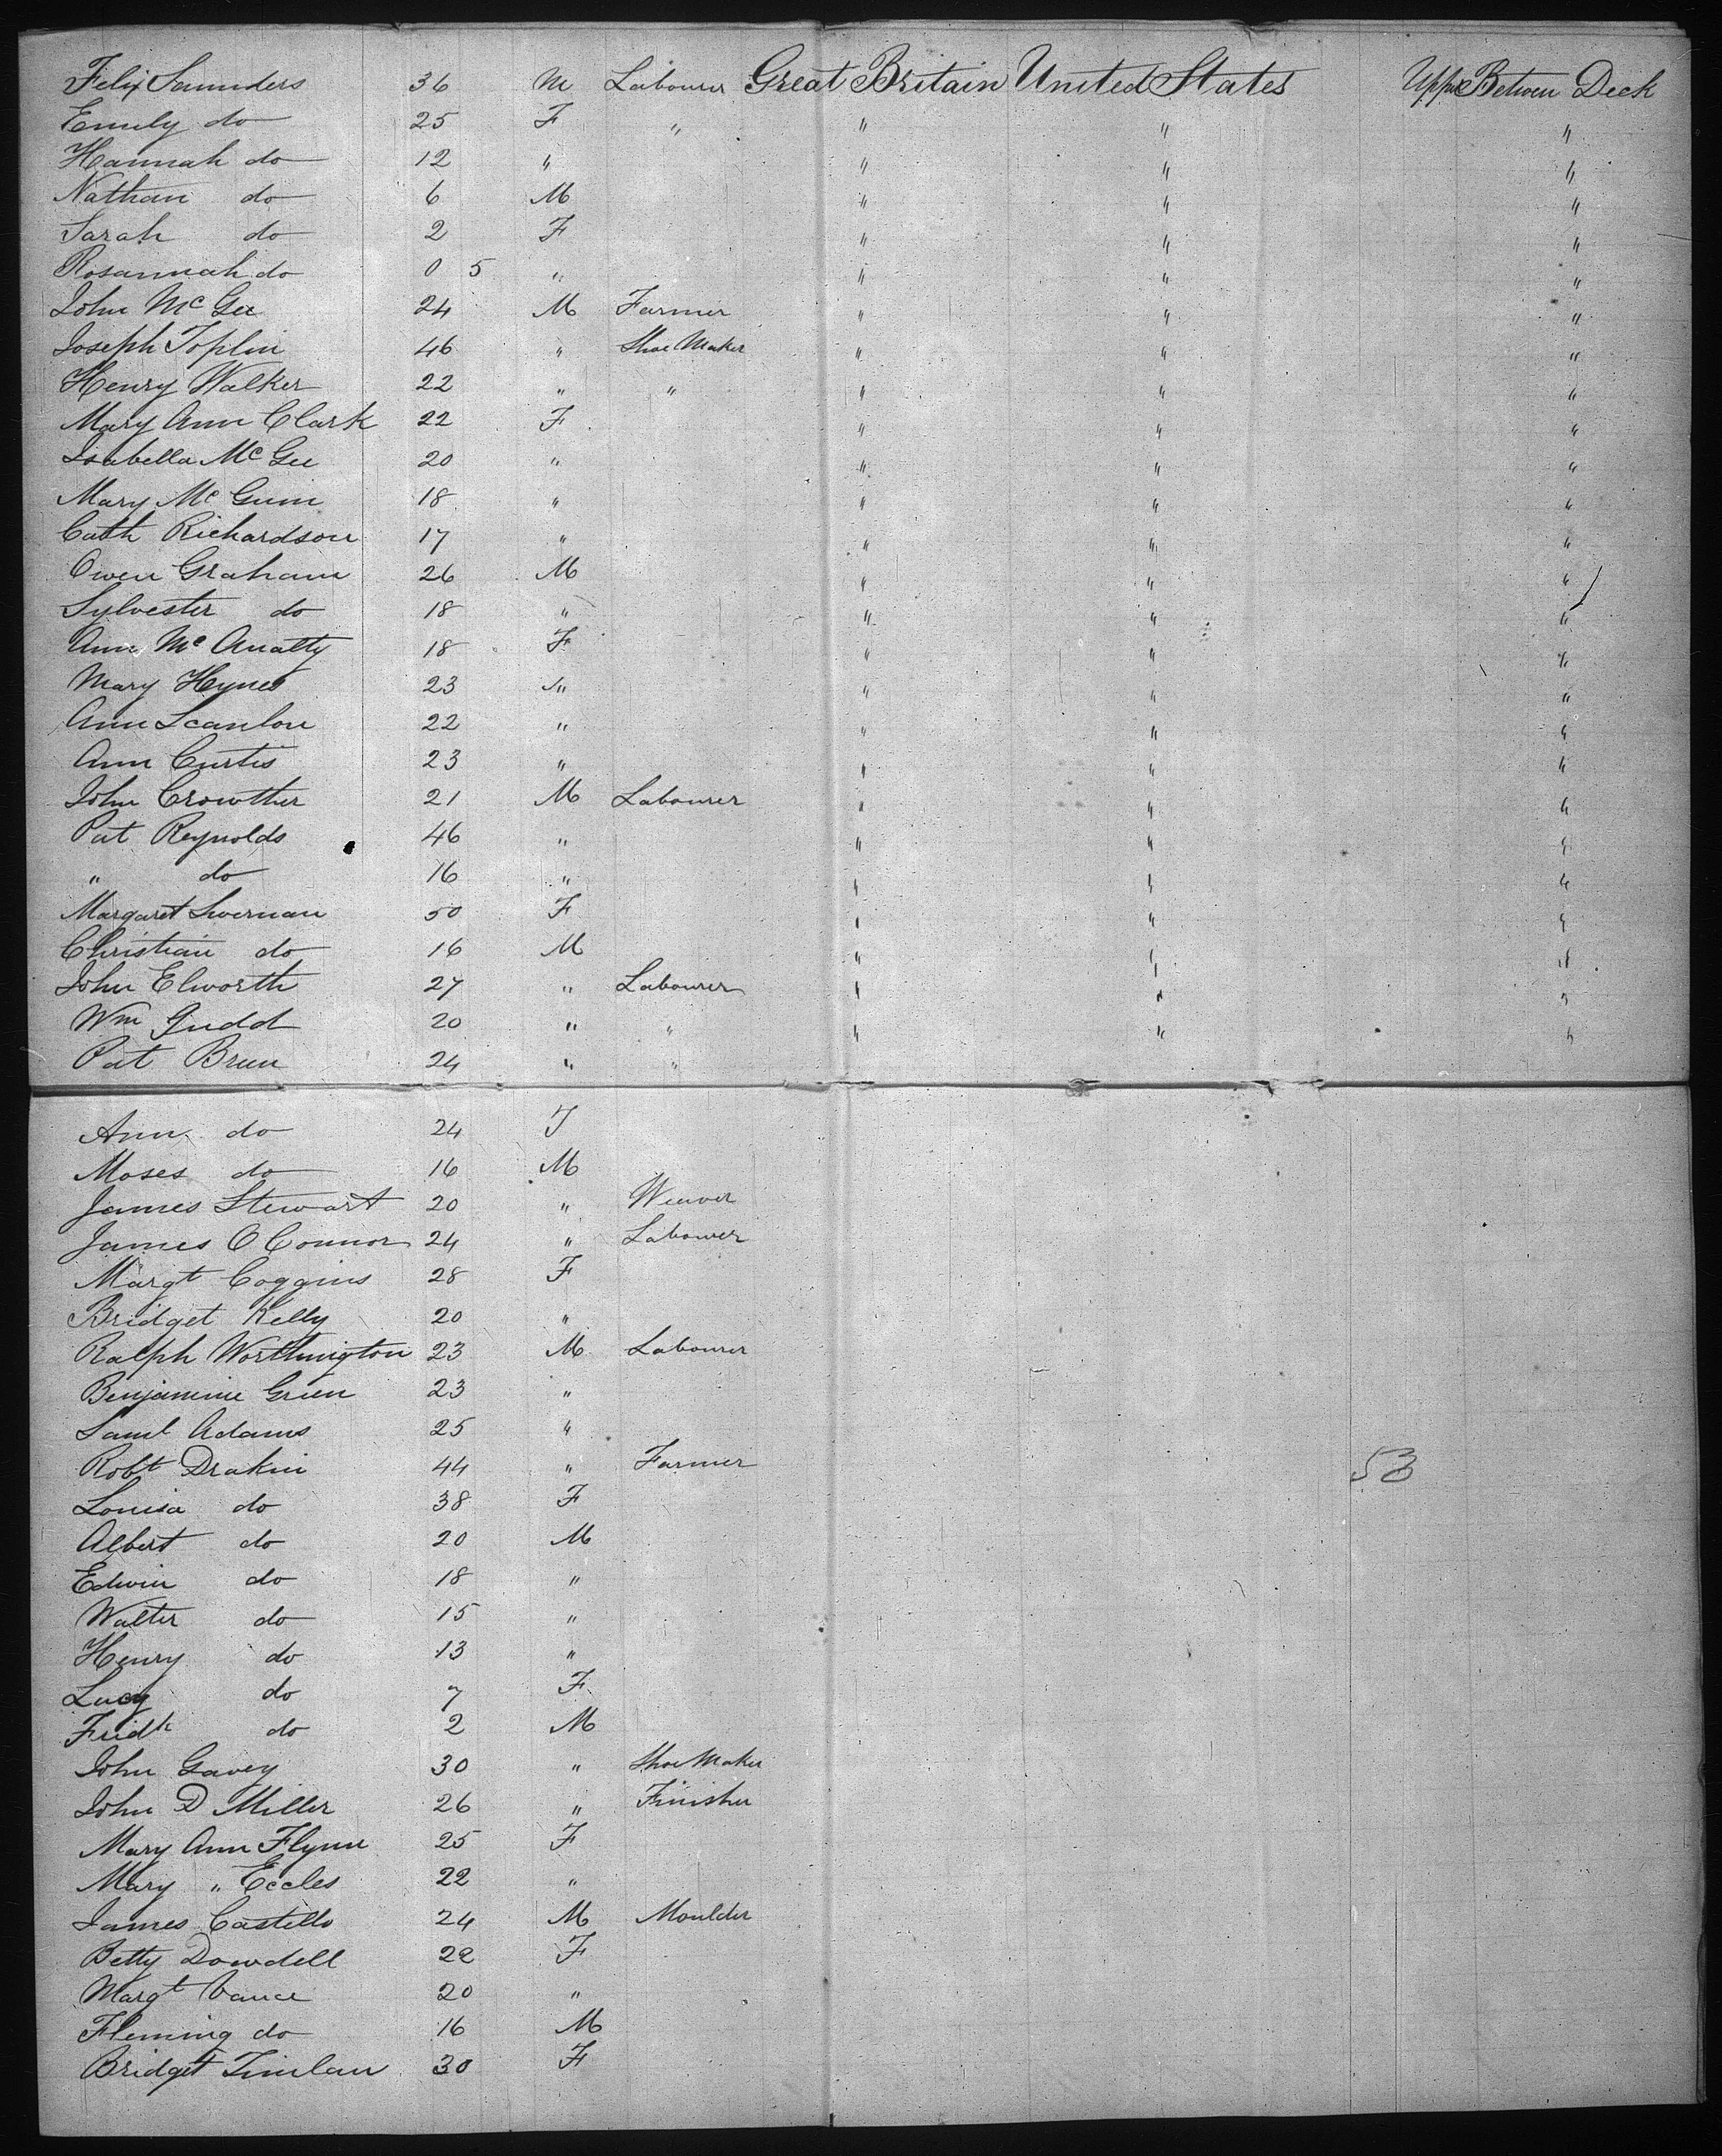 Felix Saunders 36 M Labourer Great Britain United States Upper Between Deck
Emily do 25 F " " " "
Hannah do 12 " " " "
Nathan do 6 M " " "
Sarah do 2 F " " "
Rosannah do 0 5 " " " "
John McGee 24 M Farmer " " "
Joseph Toplin 46 " Shoe Maker " " "
Henry Walker 22 " " " " "
Mary Ann Clark 22 F " " "
Isabella McGee 20 " " " "
Mary McGuin 18 " " " "
Cath Richardson 17 " " " "
Owen Graham 26 M " " "
Sylvester do 18 " " " "
Ann McAnalty 18 F " " "
Mary Hynes 23 " " " "
Ann Scanlon 22 " " " "
Ann Curtis 23 " " " "
John Crowther 21 M Labourer " " "
Pat Reynolds 46 " " " "
" do 16 " " " "
Margaret 50 F " " "
Christian do 16 M " " "
John Elworth 27 " Labourer " " "
Wm Judd 20 " " " " "
Pat Breen 24 " "
Ann do 24 F
Moses do 16 M
James Stewart 20 " Weaver
James O Connor 24 " Labourer
Margt Coggins 28 F
Bridget Kelly 20 "
Ralph Worthington 23 M Labourer
Benjamine Green 23 "
Saml Adams 25 "
Robt Drakin 44 " Farmer 53
Louisa do 38 F
Albert do 20 M
Edwin do 18 "
Walter do 15 "
Henry do 13 "
Lucy do 7 F
Fredk do 2 M
John Gavey 30 " Shoe Maker
John D Miller 26 " Finisher
Mary Ann Flynn 25 F
Mary " Eccles 22 "
James Castello 24 M Moulder
Betty Dowdell 22 F
Margt Vance 20 "
Fleming do 16 M
Bridget Tinlan 30 F